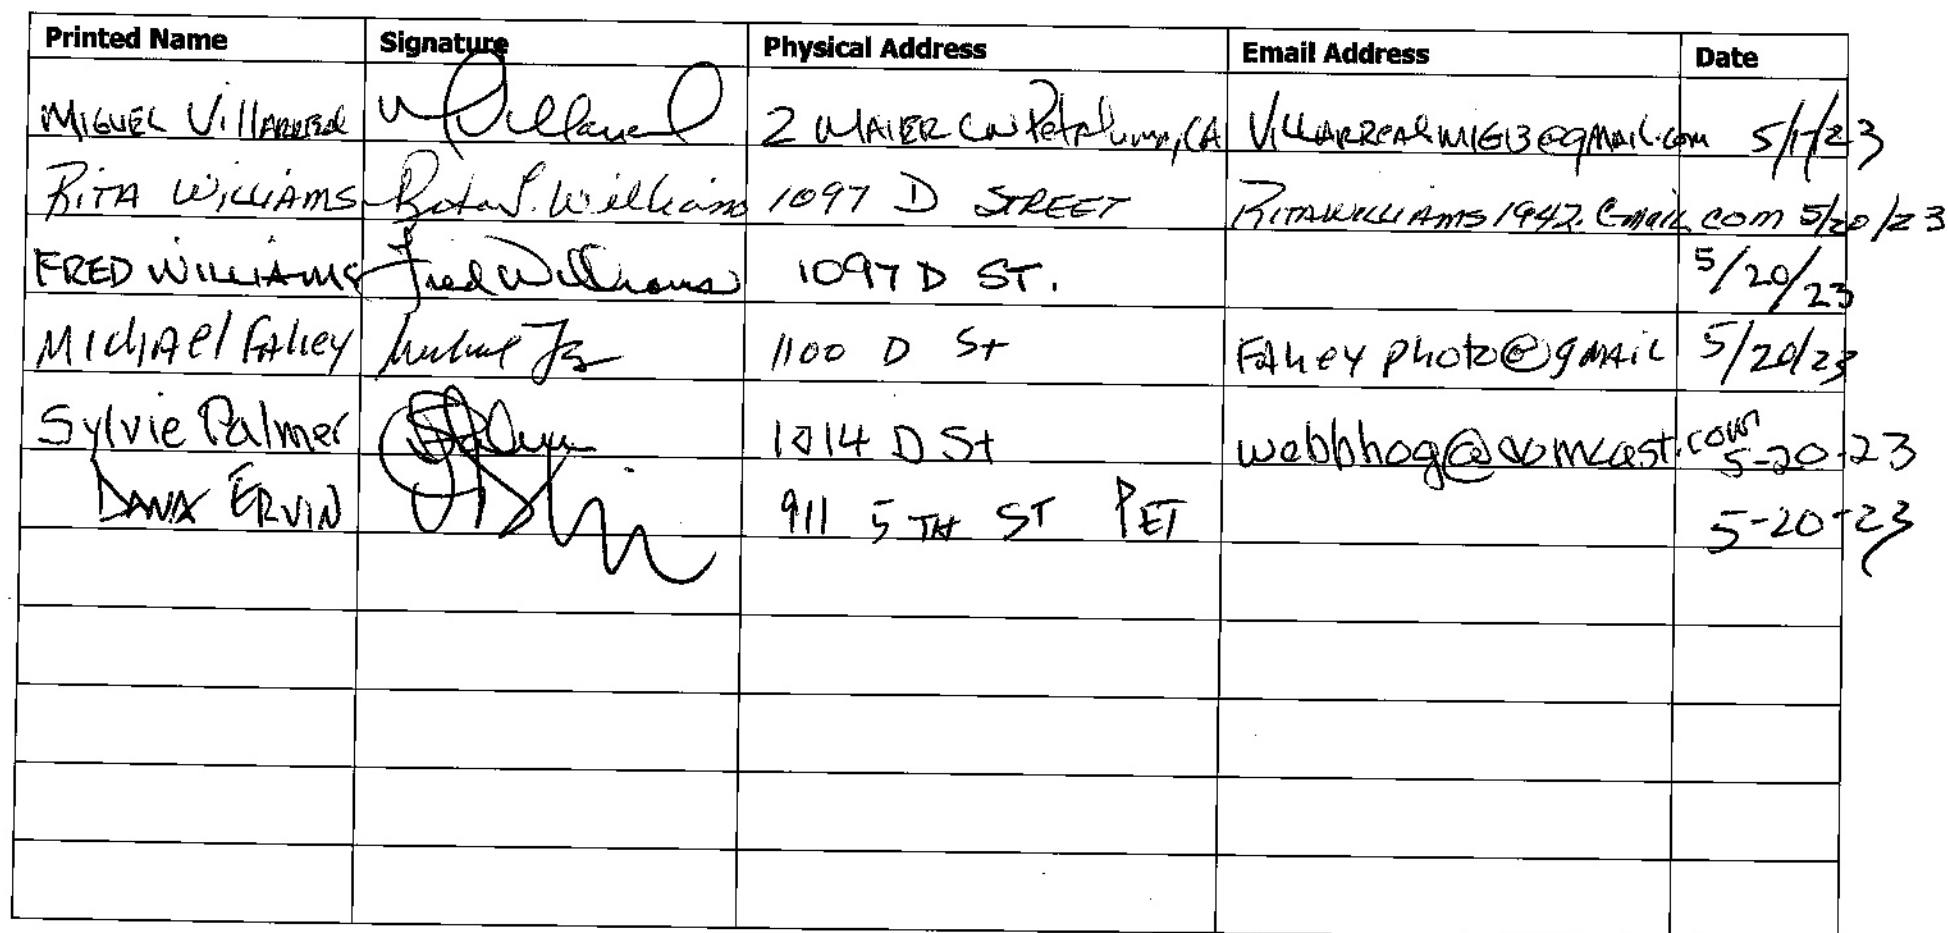 Printed Name Signature Physical Address Email Address Date
MIGUEL VillARREAL M Villarreal 2 MAIER LN Petaluma, CA VILLARREALMIG13@gMAIL.com 5/1/23
RITA WILLIAMS Rita S. Williams 1097 D STREET RITAWILLIAMS1942.GMAIL.COM 5/20/23
FRED WILLIAMS Fred Williams 1097 D ST. 5/20/23
MICHAEl FAHEY 1100 D St FAHEY photo@gMAIL 5/20/23
Sylvie Palmer 1014 D St webbhog@comcast.com 5-20-23
DANA ERVIN 911 5TH ST PET 5-20-23